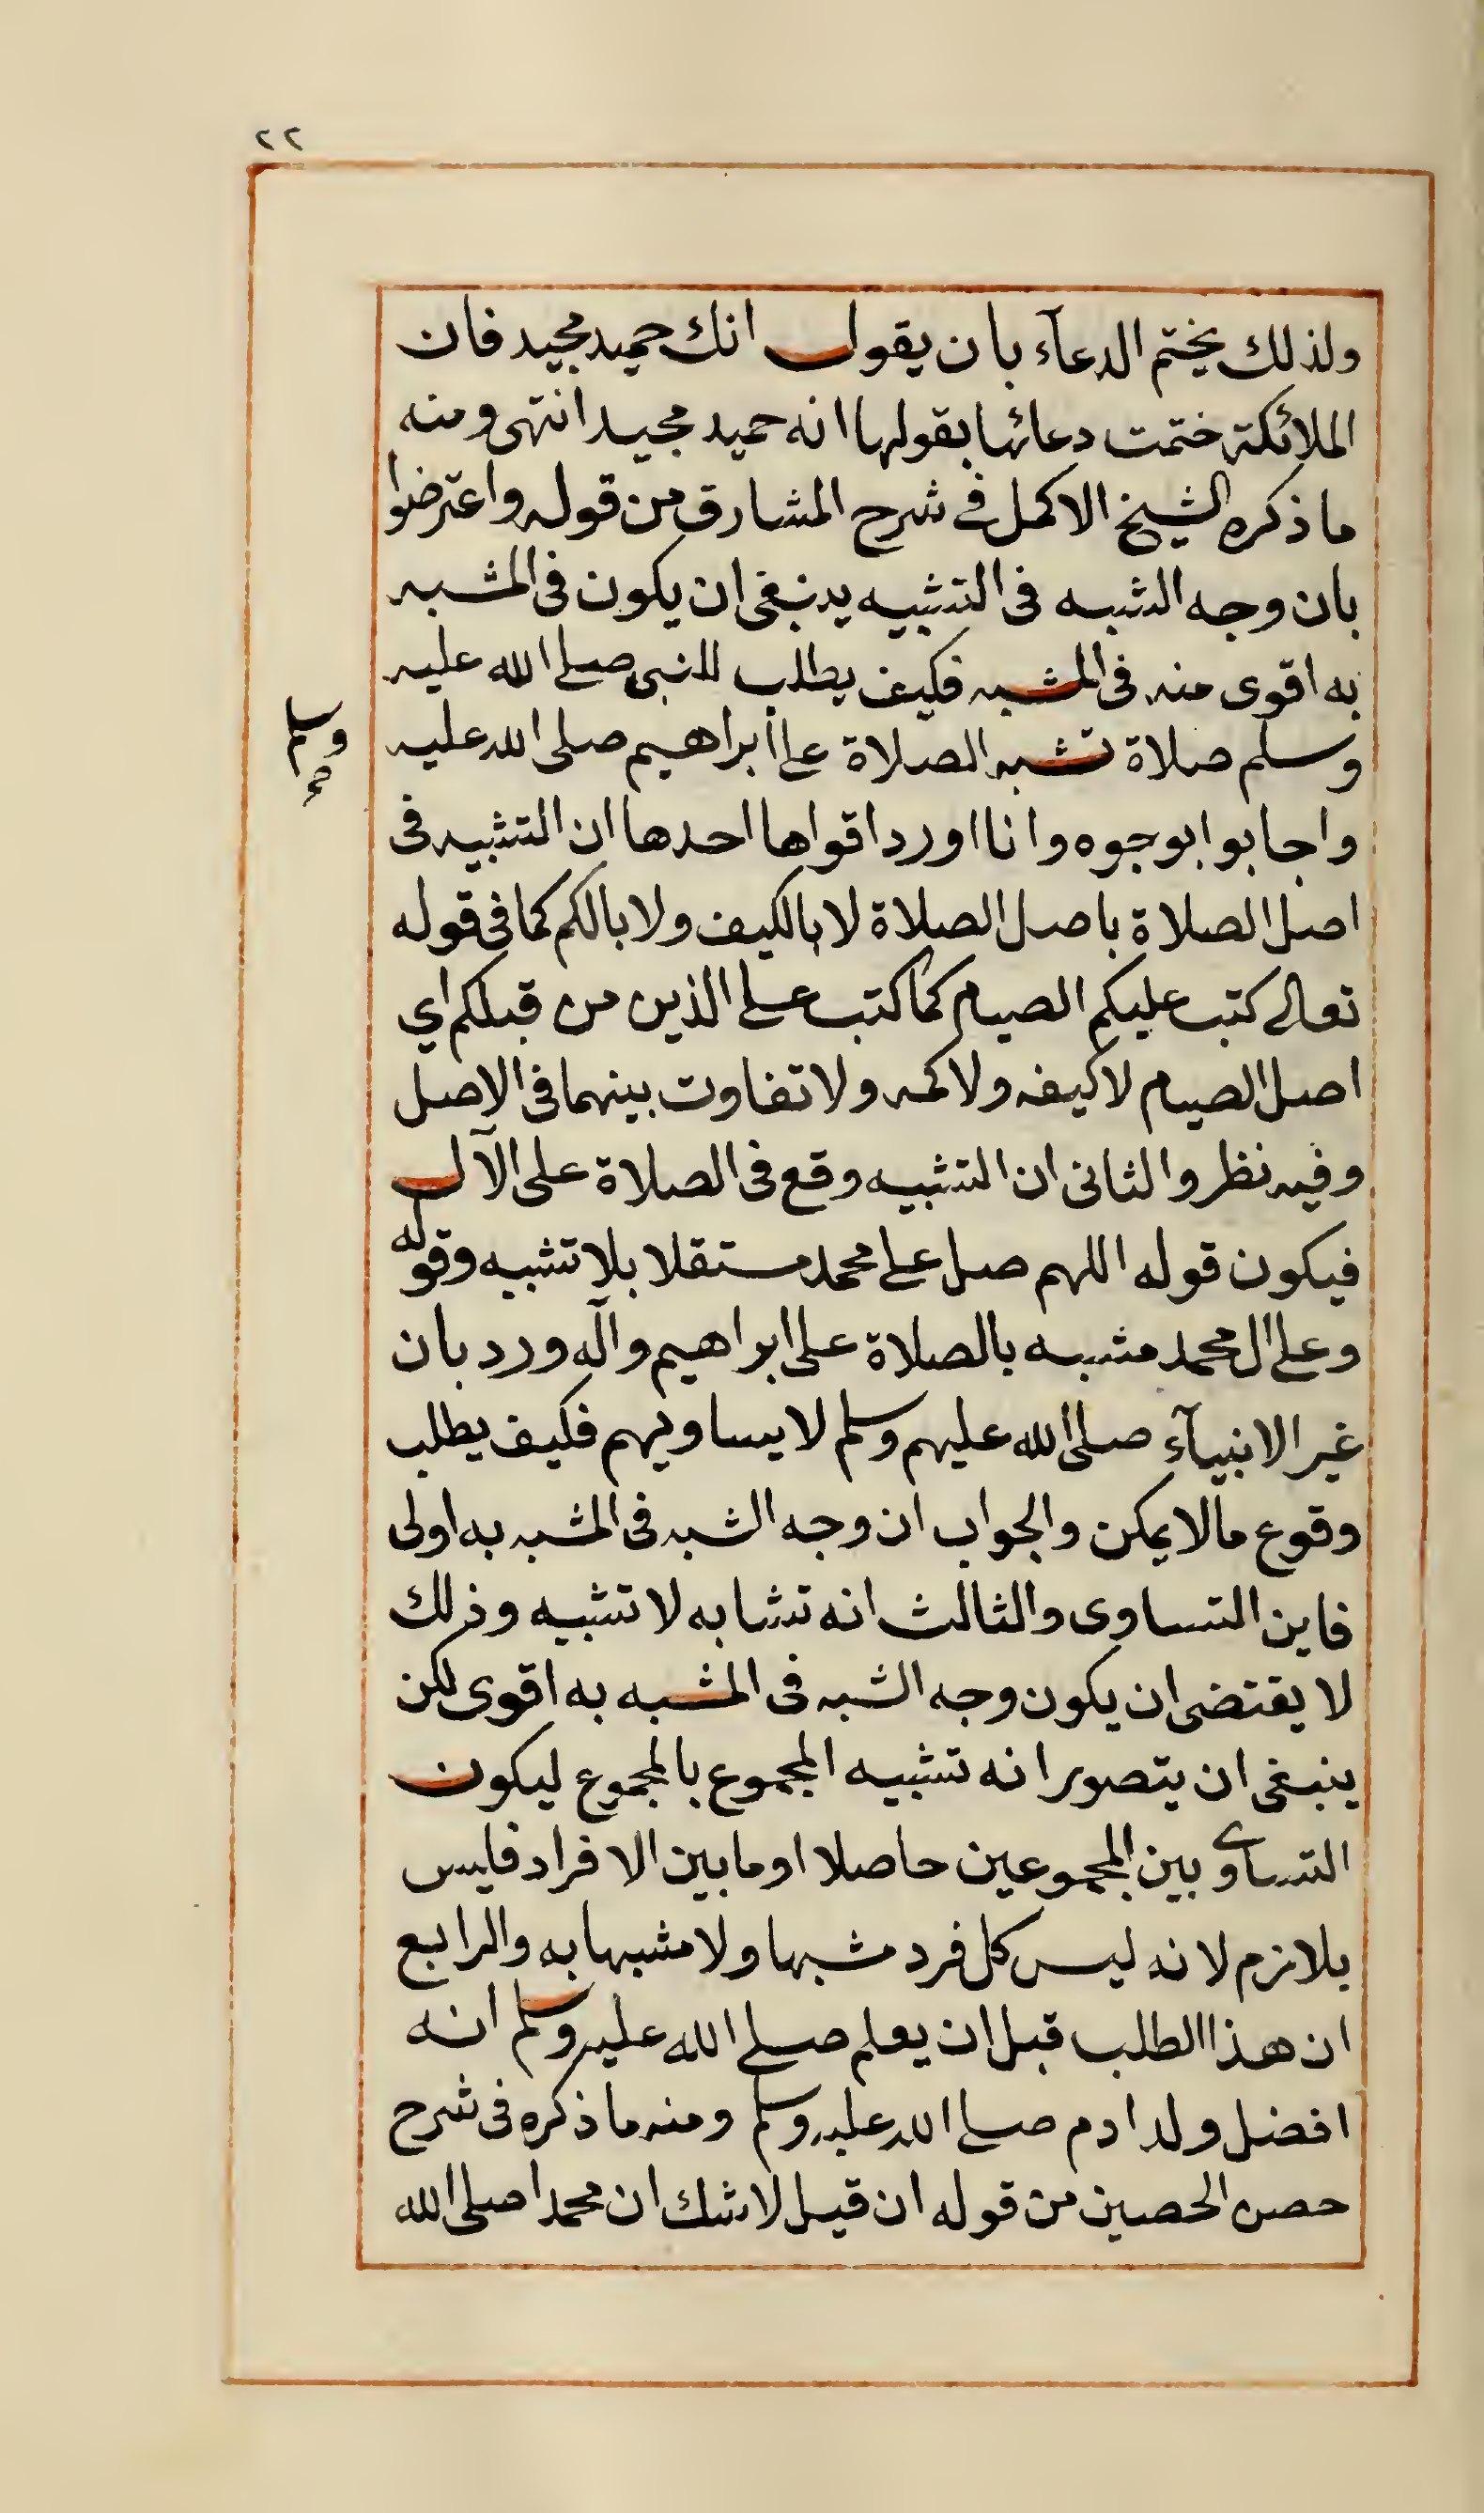 ٢٢
ولذلك يختم الدعآء بان يقول انك حميد مجيد فان
الملائكة ختمت دعائها بقولها انه حميد مجيد انتهى ومنه
ما ذكره الشيخ الاكمل في شرح المشارق من قوله واعترضوا
بان وجه الشبه فى التشبيه ينبغى ان يكون فى المشبه
به اقوى منه فى المشبه فكيف يطلب للنبى صلى الله عليه
وسلم صلاة تشبه الصلاة على ابراهيم صلى الله عليه
وسلم صح
واجابوا بوجوه وانا اورد اقواها احدها ان التشبيه فى
اصل الصلاة باصل الصلاة لا بالكيف ولا بالكم كما فى قوله
تعالى كتب عليكم الصيام كما كتب على الذين من قبلكم اي
اصل الصيام لا كيفه ولا كمه ولا تفاوت بينهما فى الاصل
وفيه نظر والثانى ان التشبيه وقع فى الصلاة على الآل
فيكون قوله اللهم صل على محمد مستقلا بلا تشبيه وقوله
وعلى ال محمد مشبه بالصلاة على ابراهيم وآله ورد بان
غير الانبيآء صلى الله عليهم وسلم لا يساويهم فكيف يطلب
وقوع مالا يمكن والجواب ان وجه الشبه فى المشبه به اولى
فاين التساوى والثالث انه تشابه لا تشبيه وذلك
لا يقتضى ان يكون وجه الشبه فى المشبه به اقوى لكن
ينبغى ان يتصور انه تشبيه المجموع بالمجموع ليكون
التساوي بين المجموعين حاصلا اوما بين الافراد فليس
بلازم لانه ليس كل فرد مشبها ولا مشبها به والرابع
ان هذا الطلب قبل ان يعلم صلى الله عليه وسلم انه
افضل ولد ادم صلى الله عليه وسلم ومنه ما ذكره فى شرح
حصن الحصين من قوله ان قيل لا شك ان محمدا صلى الله